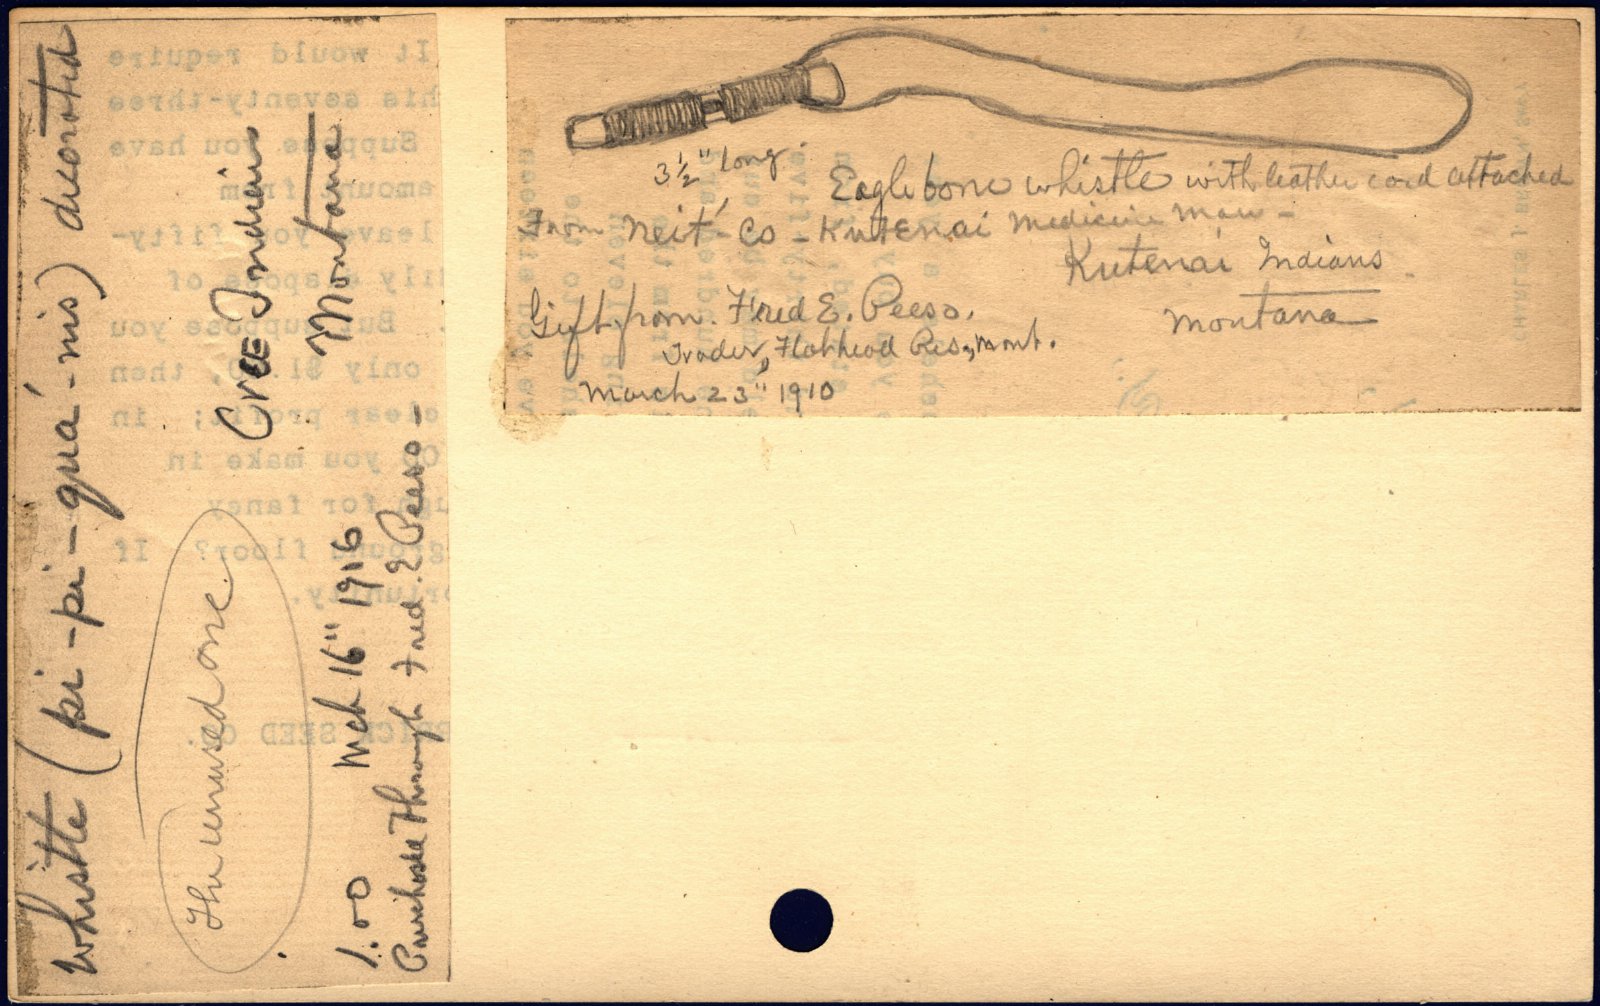 Whistle (pi-pi-quá-nis) decorated
Cree Indians
Montana
The unused one
1.00 Mch 16" 1916
Purchased Through Fred. E Peeso-
3½" long.
Eagle bone whistle with leather cord attached
From Neit'-Co - Kutenai Medicine Man -
Kutenai Indians
Montana
Gift from. Fred E. Peeso.
Trader, Flathead Res, Mont.
March 23" 1910
It would require
his seventy-three
Suppose you have
amount from
leave you fifty-
dily dispose of
. But suppose you
only $1. 0, then
clear profit; in
00 you make in
ugh for fancy
ground floor? If
ortunity.
SEED CO.